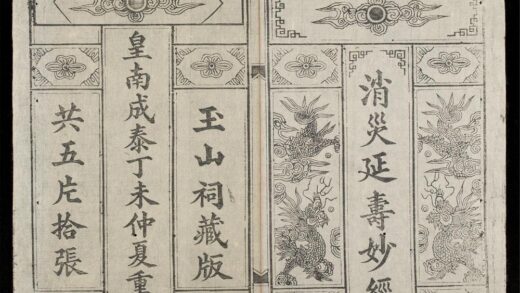 消災延壽妙經
玉山祠藏版
皇南成泰丁未仲夏重
共五片拾張